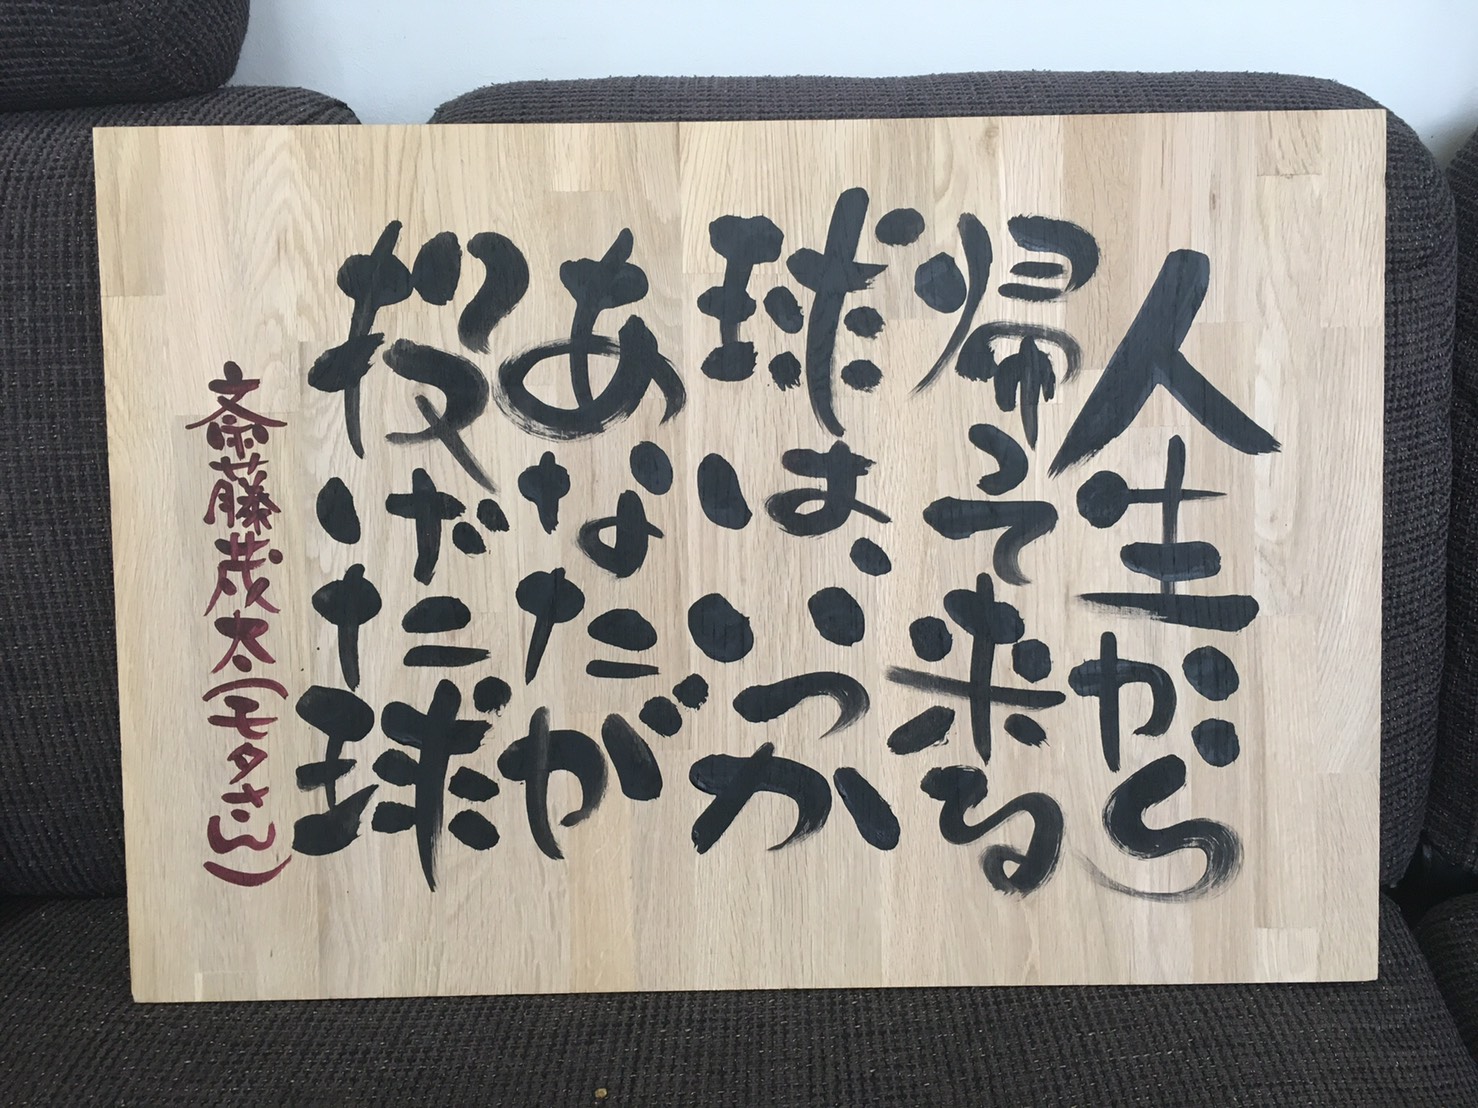 人生から
帰って来る
球は、いつか
あなただが
投げた球
斎藤茂太(モタさん)